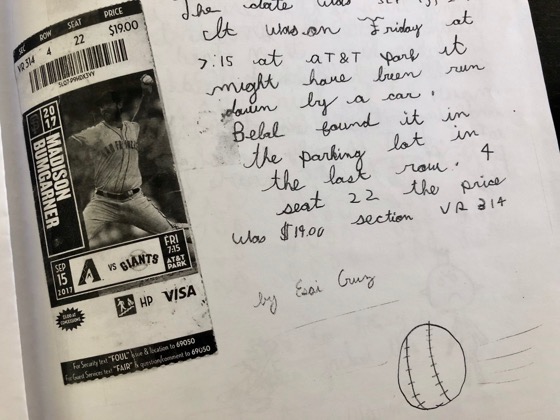 SEC ROW SEAT PRICE
VR314 4 22 $19.00
2017
MADISON
BUMGARNER
SAN FRANCISCO
A VS GIANTS
FRI
7:15
AT&T
PARK
SEP
15
2017
HP VISA
For Security text "FOUL" issue & location to 69050
For Guest Services text "FAIR" & question/comment to 69050
The date was
It was on Friday at
7:15 at AT&T park it
might have been run
down by a car.
Belal found it in
the parking lot in
the last row. 4
seat 22 the price
was $19.00 section VR 314
by Esai Cruz